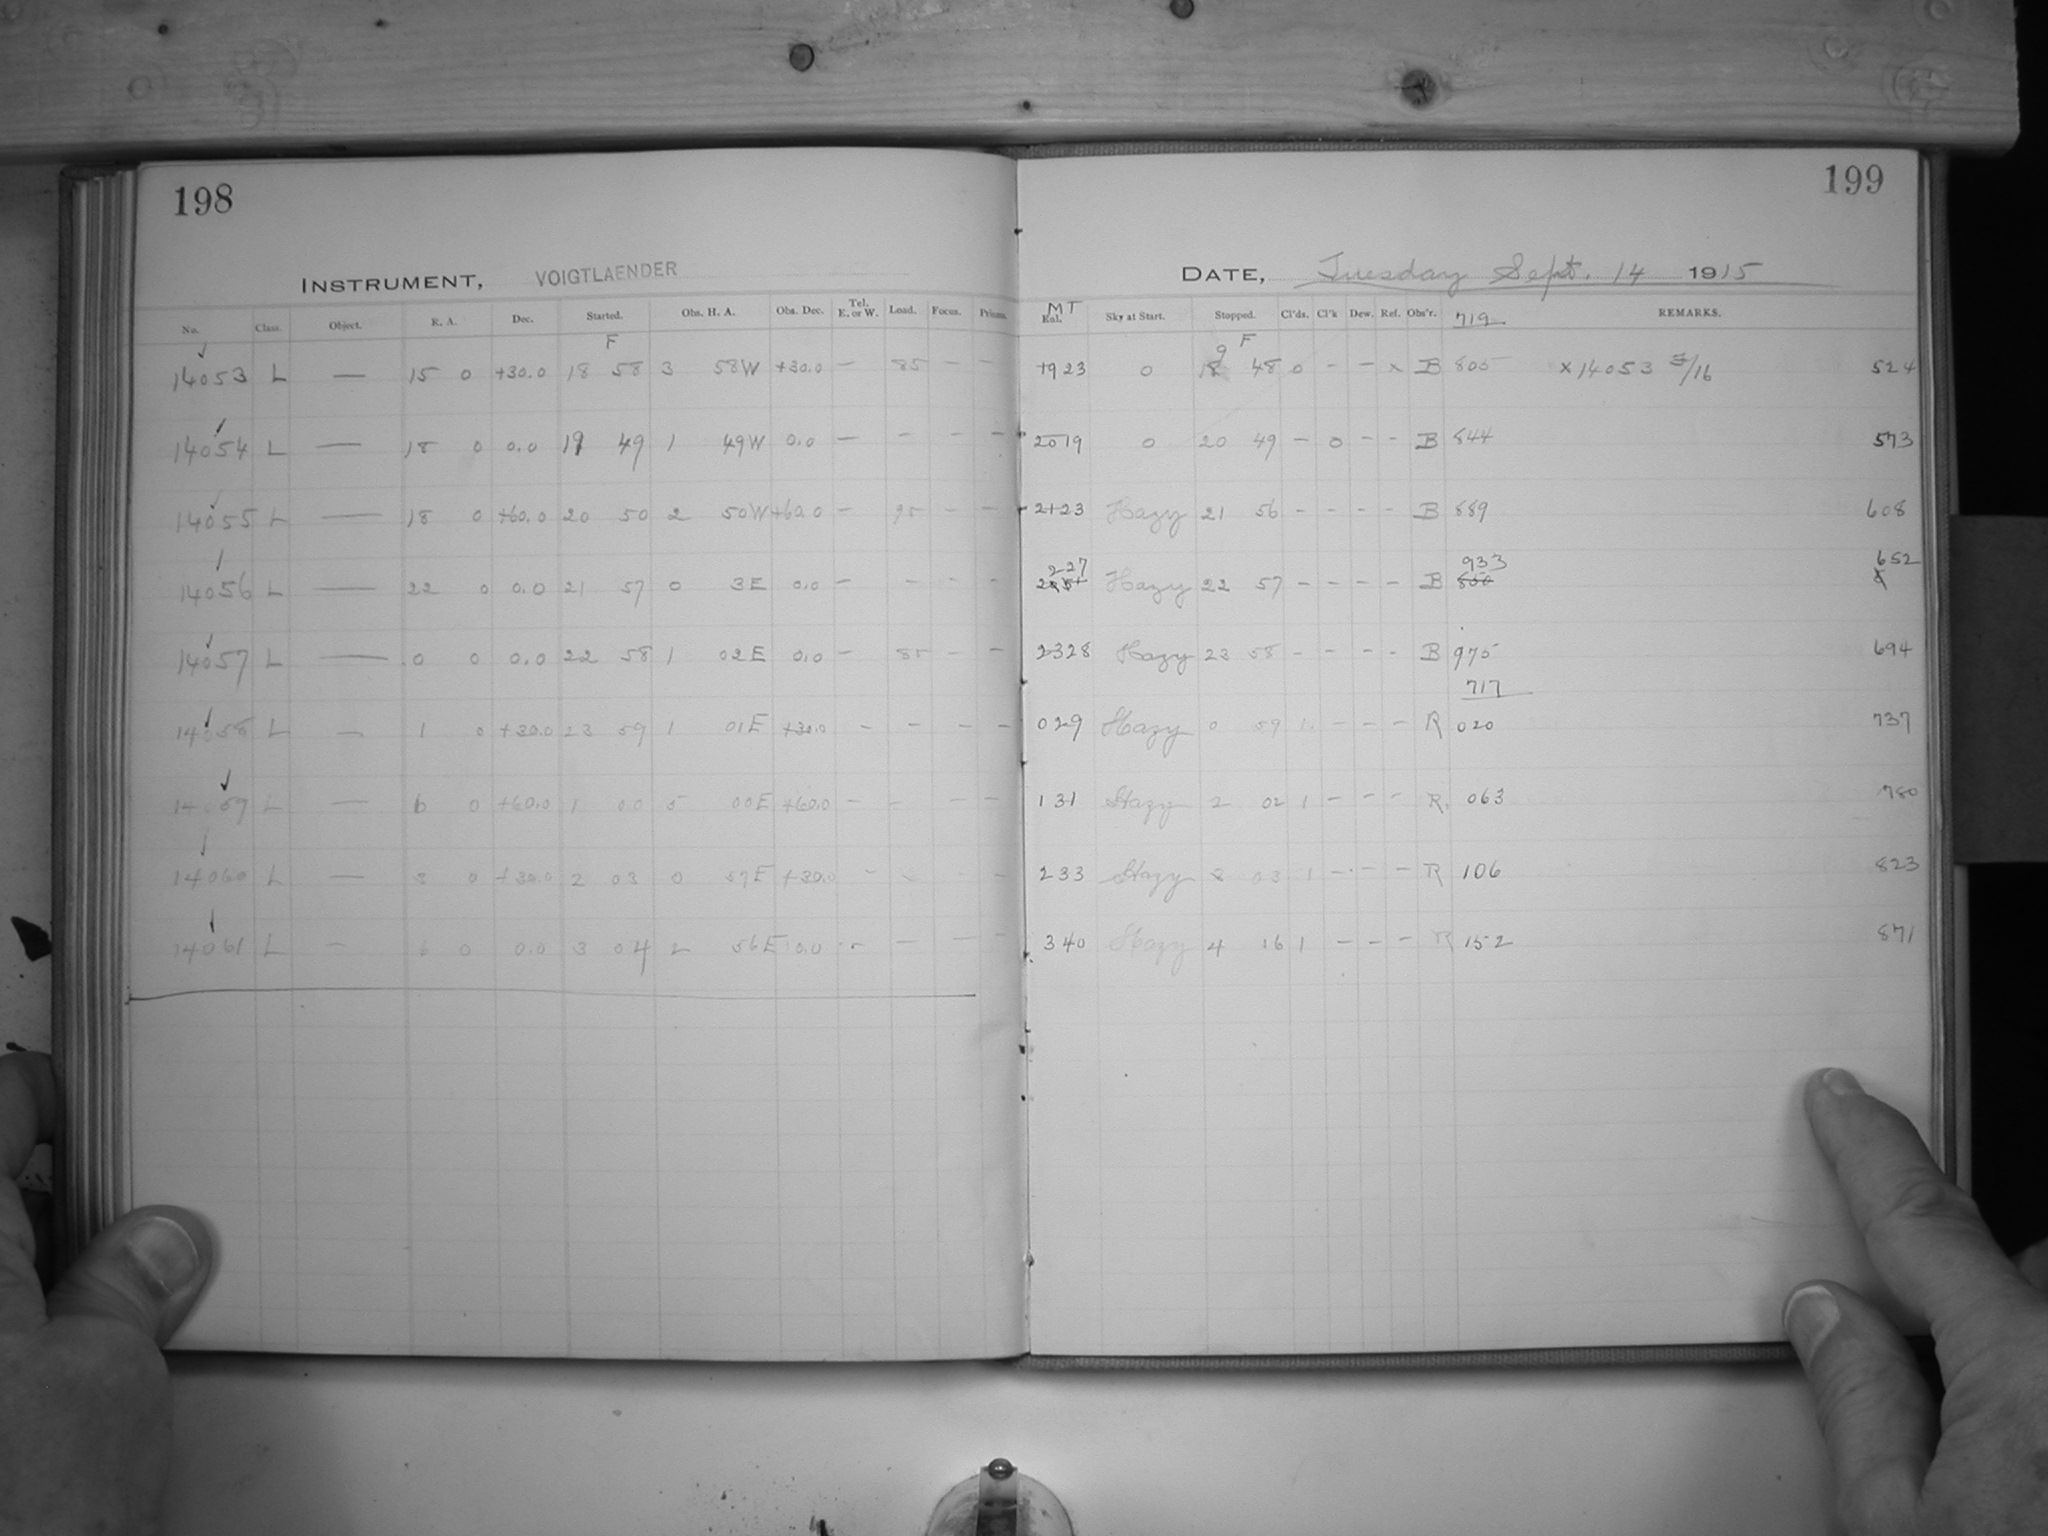 198
INSTRUMENT, VOIGTLAENDER
No. Class. Object. R. A. Dec. Started. Obs. H. A. Obs. Dec. Tel. E. or W. Load. Focus. Prisms.
F
14053 L — 15 0 +30.0 18 58 3 58W +30.0 — 85 — —
14054 L — 18 0 0.0 19 49 1 49W 0.0 — - - —
14055 L — 18 0 +60.0 20 50 2 50W +60.0 - 95 - -
14056 L — 22 0 0.0 21 57 0 3E 0.0 - - - -
14057 L — 0 0 0.0 22 58 1 02E 0.0 - 85 - -
14058 L — 1 0 +30.0 23 59 1 01E +30.0 - - - -
14059 L — 6 0 +60.0 1 00 5 00E +60.0 - - - -
14060 L — 3 0 +30.0 2 03 0 57E +30.0 - - - -
14061 L - 6 0 0.0 3 04 2 56E 0.0 - - - -
199
DATE, Tuesday Sept. 14 1915
MT
Sky at Start. Stopped. Cl'ds. Cl'k Dew. Ref. Obs'r. 719 REMARKS.
9 F
1923 0 18 48 0 - - x B 805 x 14053 5/16 524
2019 0 20 49 - 0 - - B 844 573
2123 Hazy 21 56 - - - - B 889 608
227 933 652
Hazy 22 57 - - - - B
2328 Hazy 23 58 - - - - B 975 694
717
029 Hazy 0 59 1. - - - R 020 737
131 Hazy 2 02 1 - - - R. 063 780
233 Hazy 3 03 1 - - - R 106 823
340 Hazy 4 16 1 - - - R 152 871